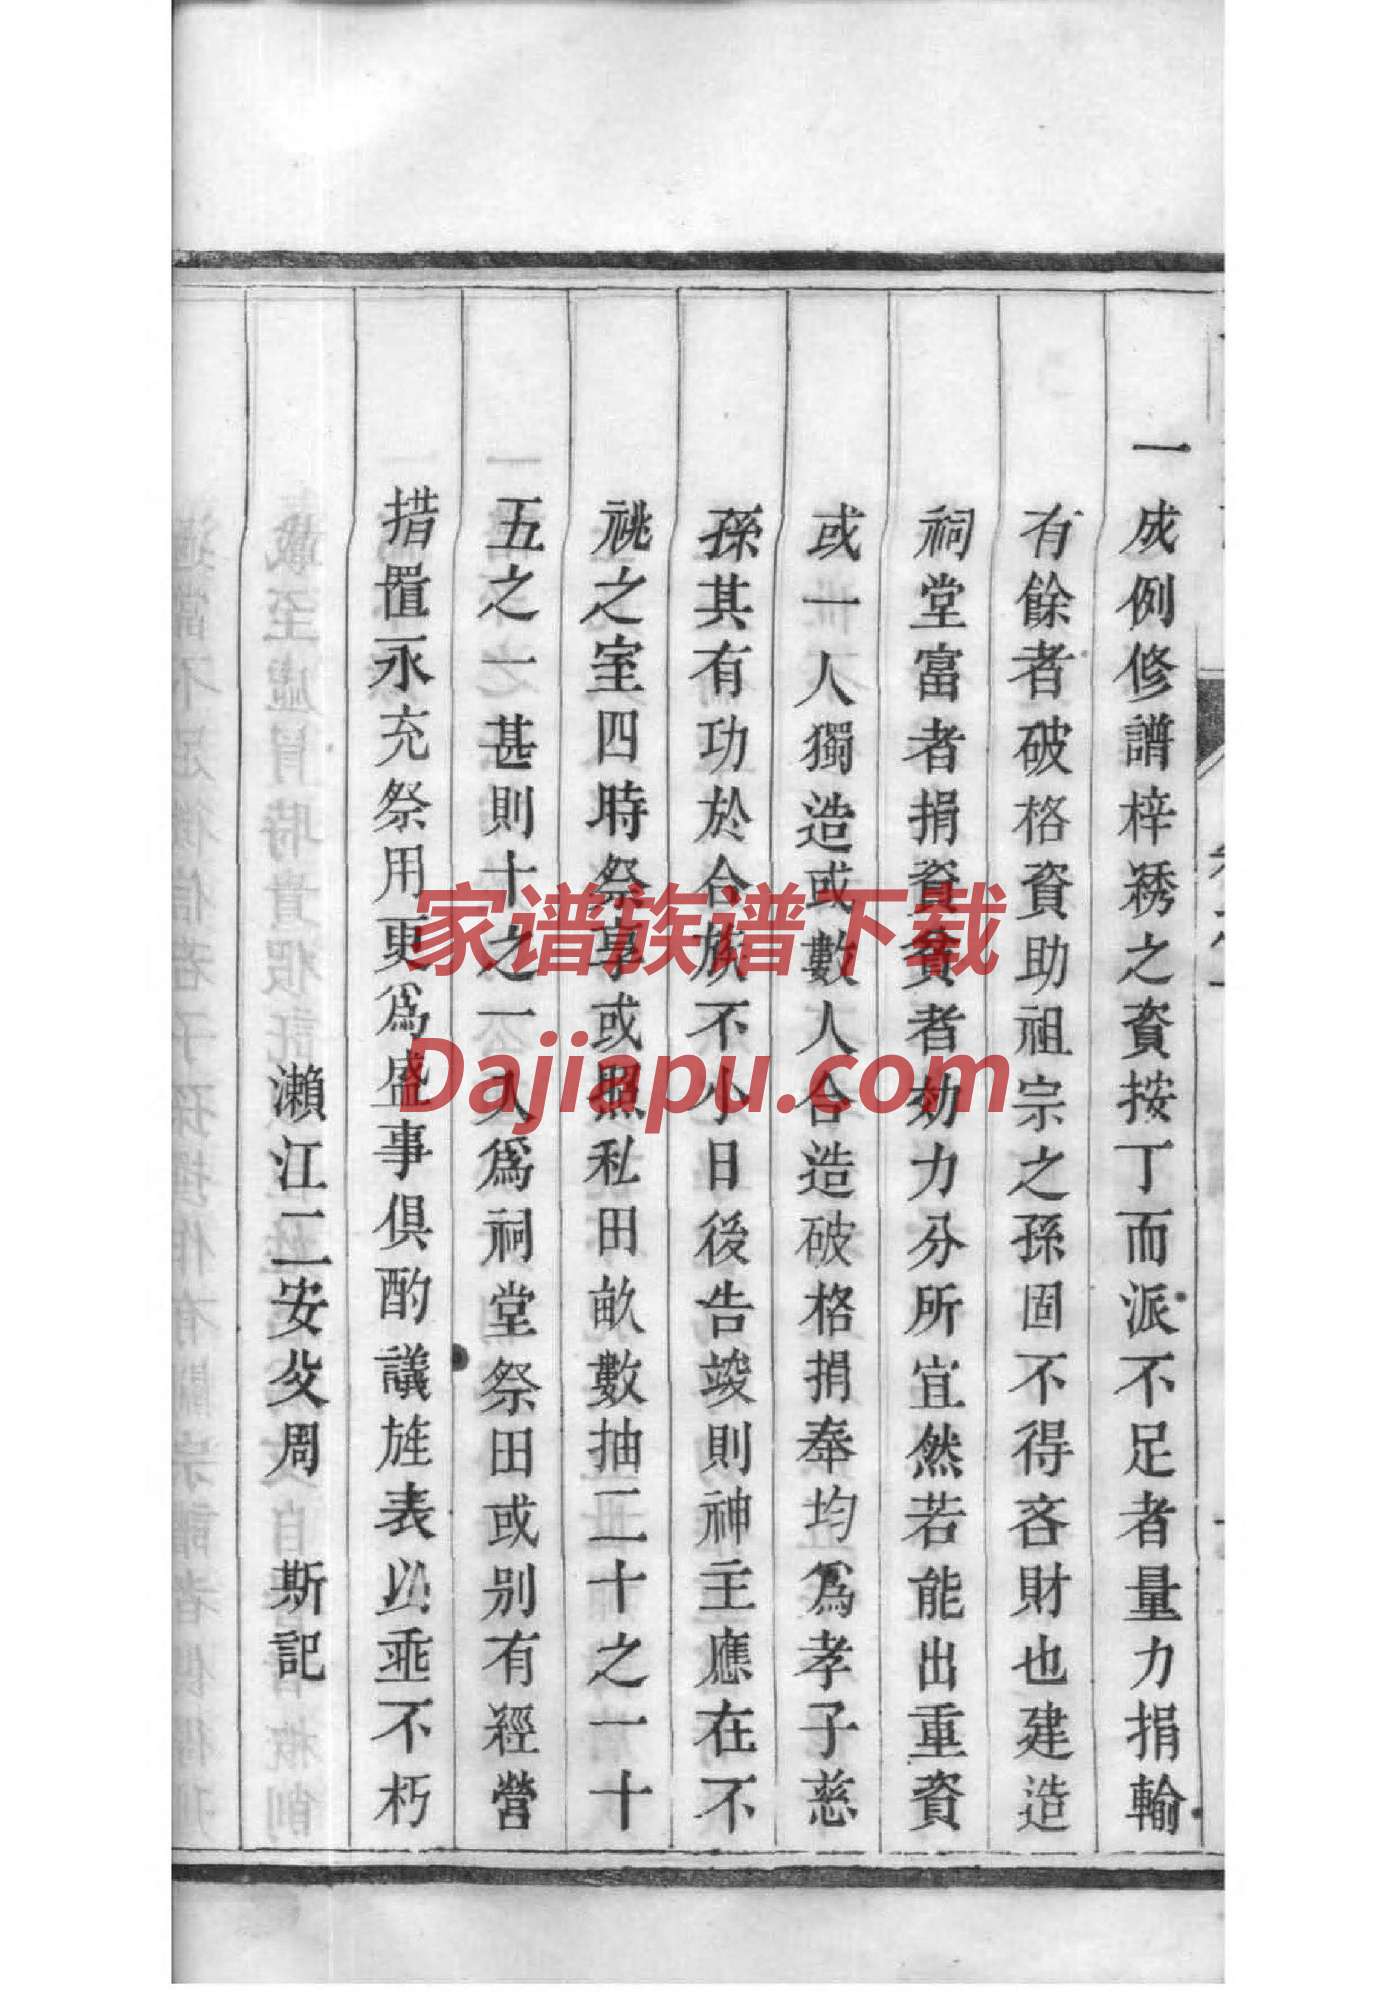 一成例修譜梓綉之資按丁而派不足者量力捐輸
有餘者破格資助祖宗之孫固不得吝財也建造
祠堂富者捐資貧者効力分所宜然若能出重資
或一人獨造或數人合造破格捐奉均爲孝子慈
孫其有功於合族不小日後告竣則神主應在不
祧之室四時祭享或照私田畝數抽二十之一十
五之一甚則十之一入爲祠堂祭田或别有經營
措置永充祭用更爲盛事俱酌議旌表以垂不朽
瀨江二安㕛周 斯記
家谱族谱下载
Dajiapu.com